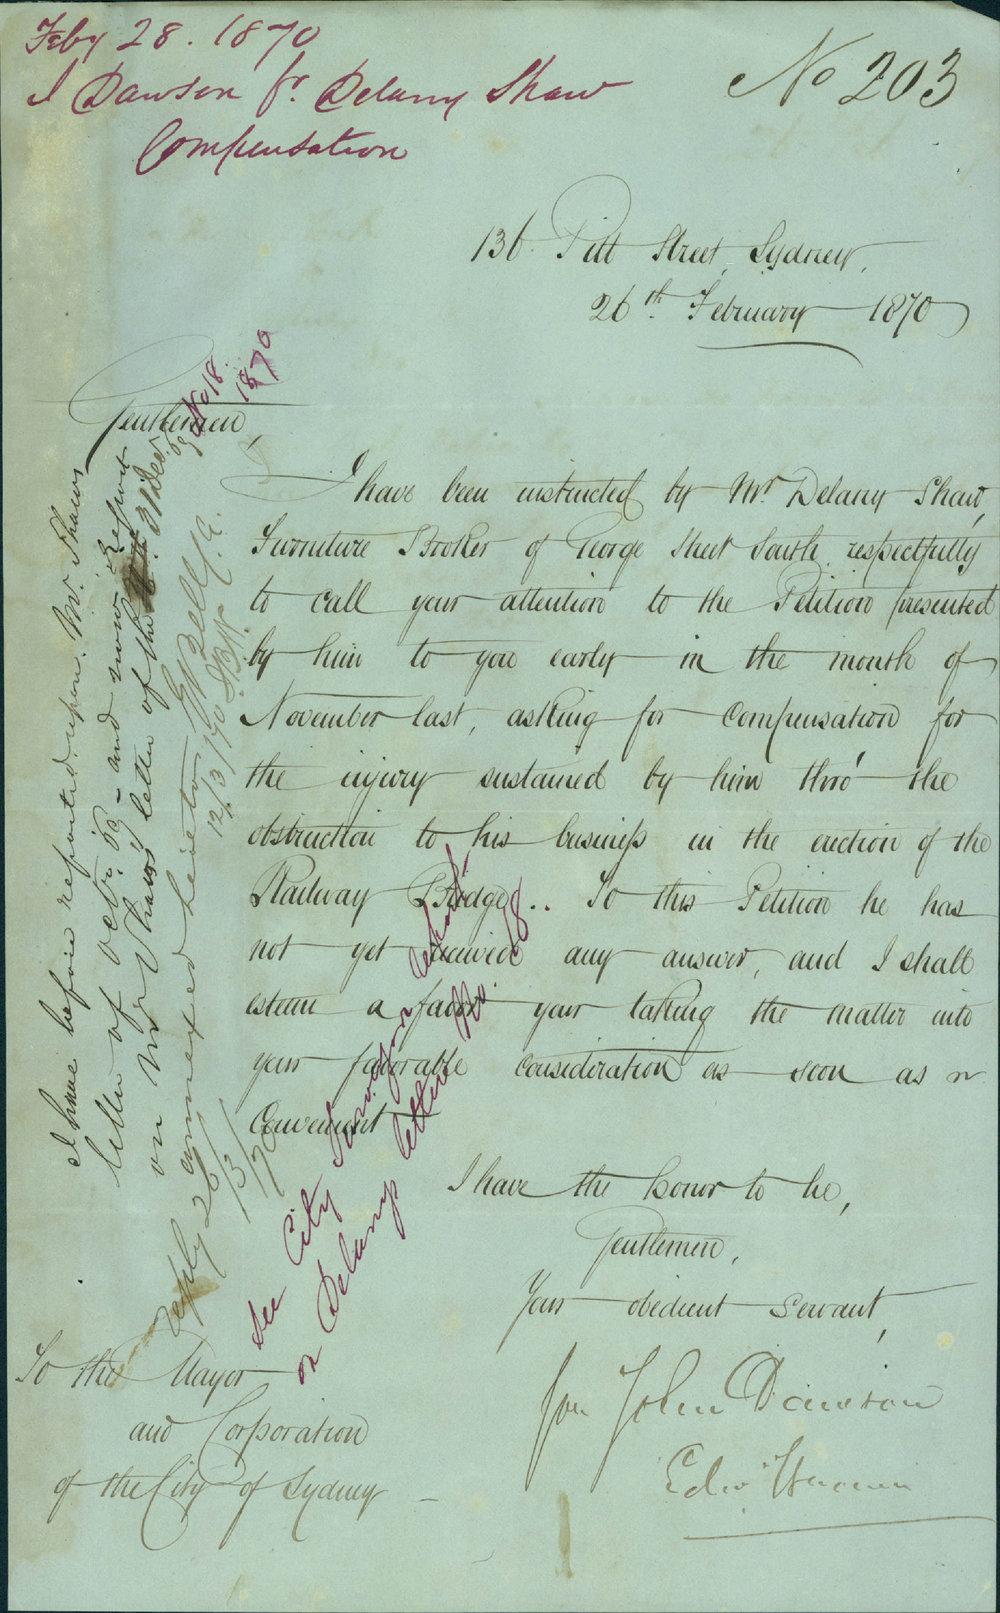 Feby 28. 1870
J Dawson fr. Delany Shaw
Compensation
No 203
136. Pitt Street, Sydney,
26th February 1870
Gentlemen,
I have been instructed by Mr Delany Shaw,
Furniture Broker of George Street South, respectfully
to call your attention to the Petition presented
by him to you early in the month of
November last, asking for compensation for
the injury sustained by him thro' the
obstruction to his business in the erection of the
Railway Bridge.. To this Petition he has
not yet received any answer, and I shall
esteem a favor your taking the matter into
your favorable consideration as soon as
Convenient
I have the honor to be,
Gentlemen,
Your obedient servant,
for John Dawson
Edw
To the Mayor
and Corporation
of the City of Sydney
I have before reported upon Mr. Shaws
letter of Oct. 69 - and now Report
on Mr Shaws letter of the 31 Decr. 69 No 18. 1870
annexed hereto EBell C.E.
12/3/70
Reply 26/3/70
See City Surveyors report
on Delany letter No. 18